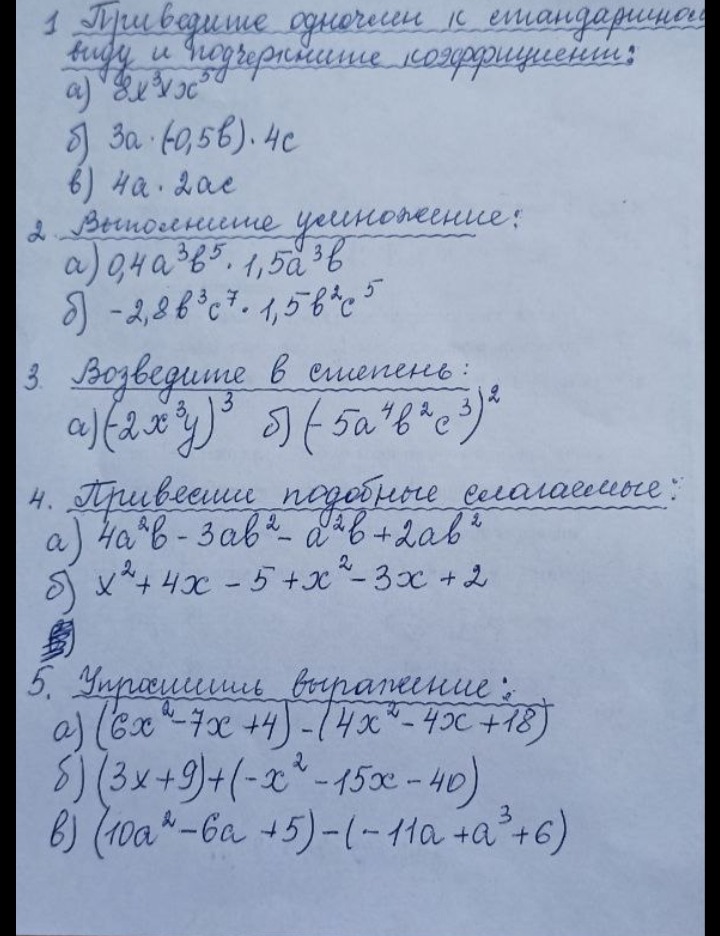 1 Приведите одночлен к стандартном
виду и подчеркните коэффициент:
а) 8x³xx⁵
б) 3а·(-0,5в)·4с
в) 4а·2ас
2. Выполните умножение:
а) 0,4а³в⁵·1,5а³в
б) -2,8в³с⁷·1,5в²с⁵
3. Возведите в степень:
а) (-2x³y)³ б) (-5а⁴в²с³)²
4. Привести подобные слагаемые:
а) 4а²в - 3ав² - а²в + 2ав²
б) x² + 4x - 5 + x² - 3x + 2
5. Упростить выражение:
а) (6x² - 7x + 4) - (4x² - 4x + 18)
б) (3x + 9) + (-x² - 15x - 40)
в) (10а² - 6а + 5) - (-11а + а³ + 6)